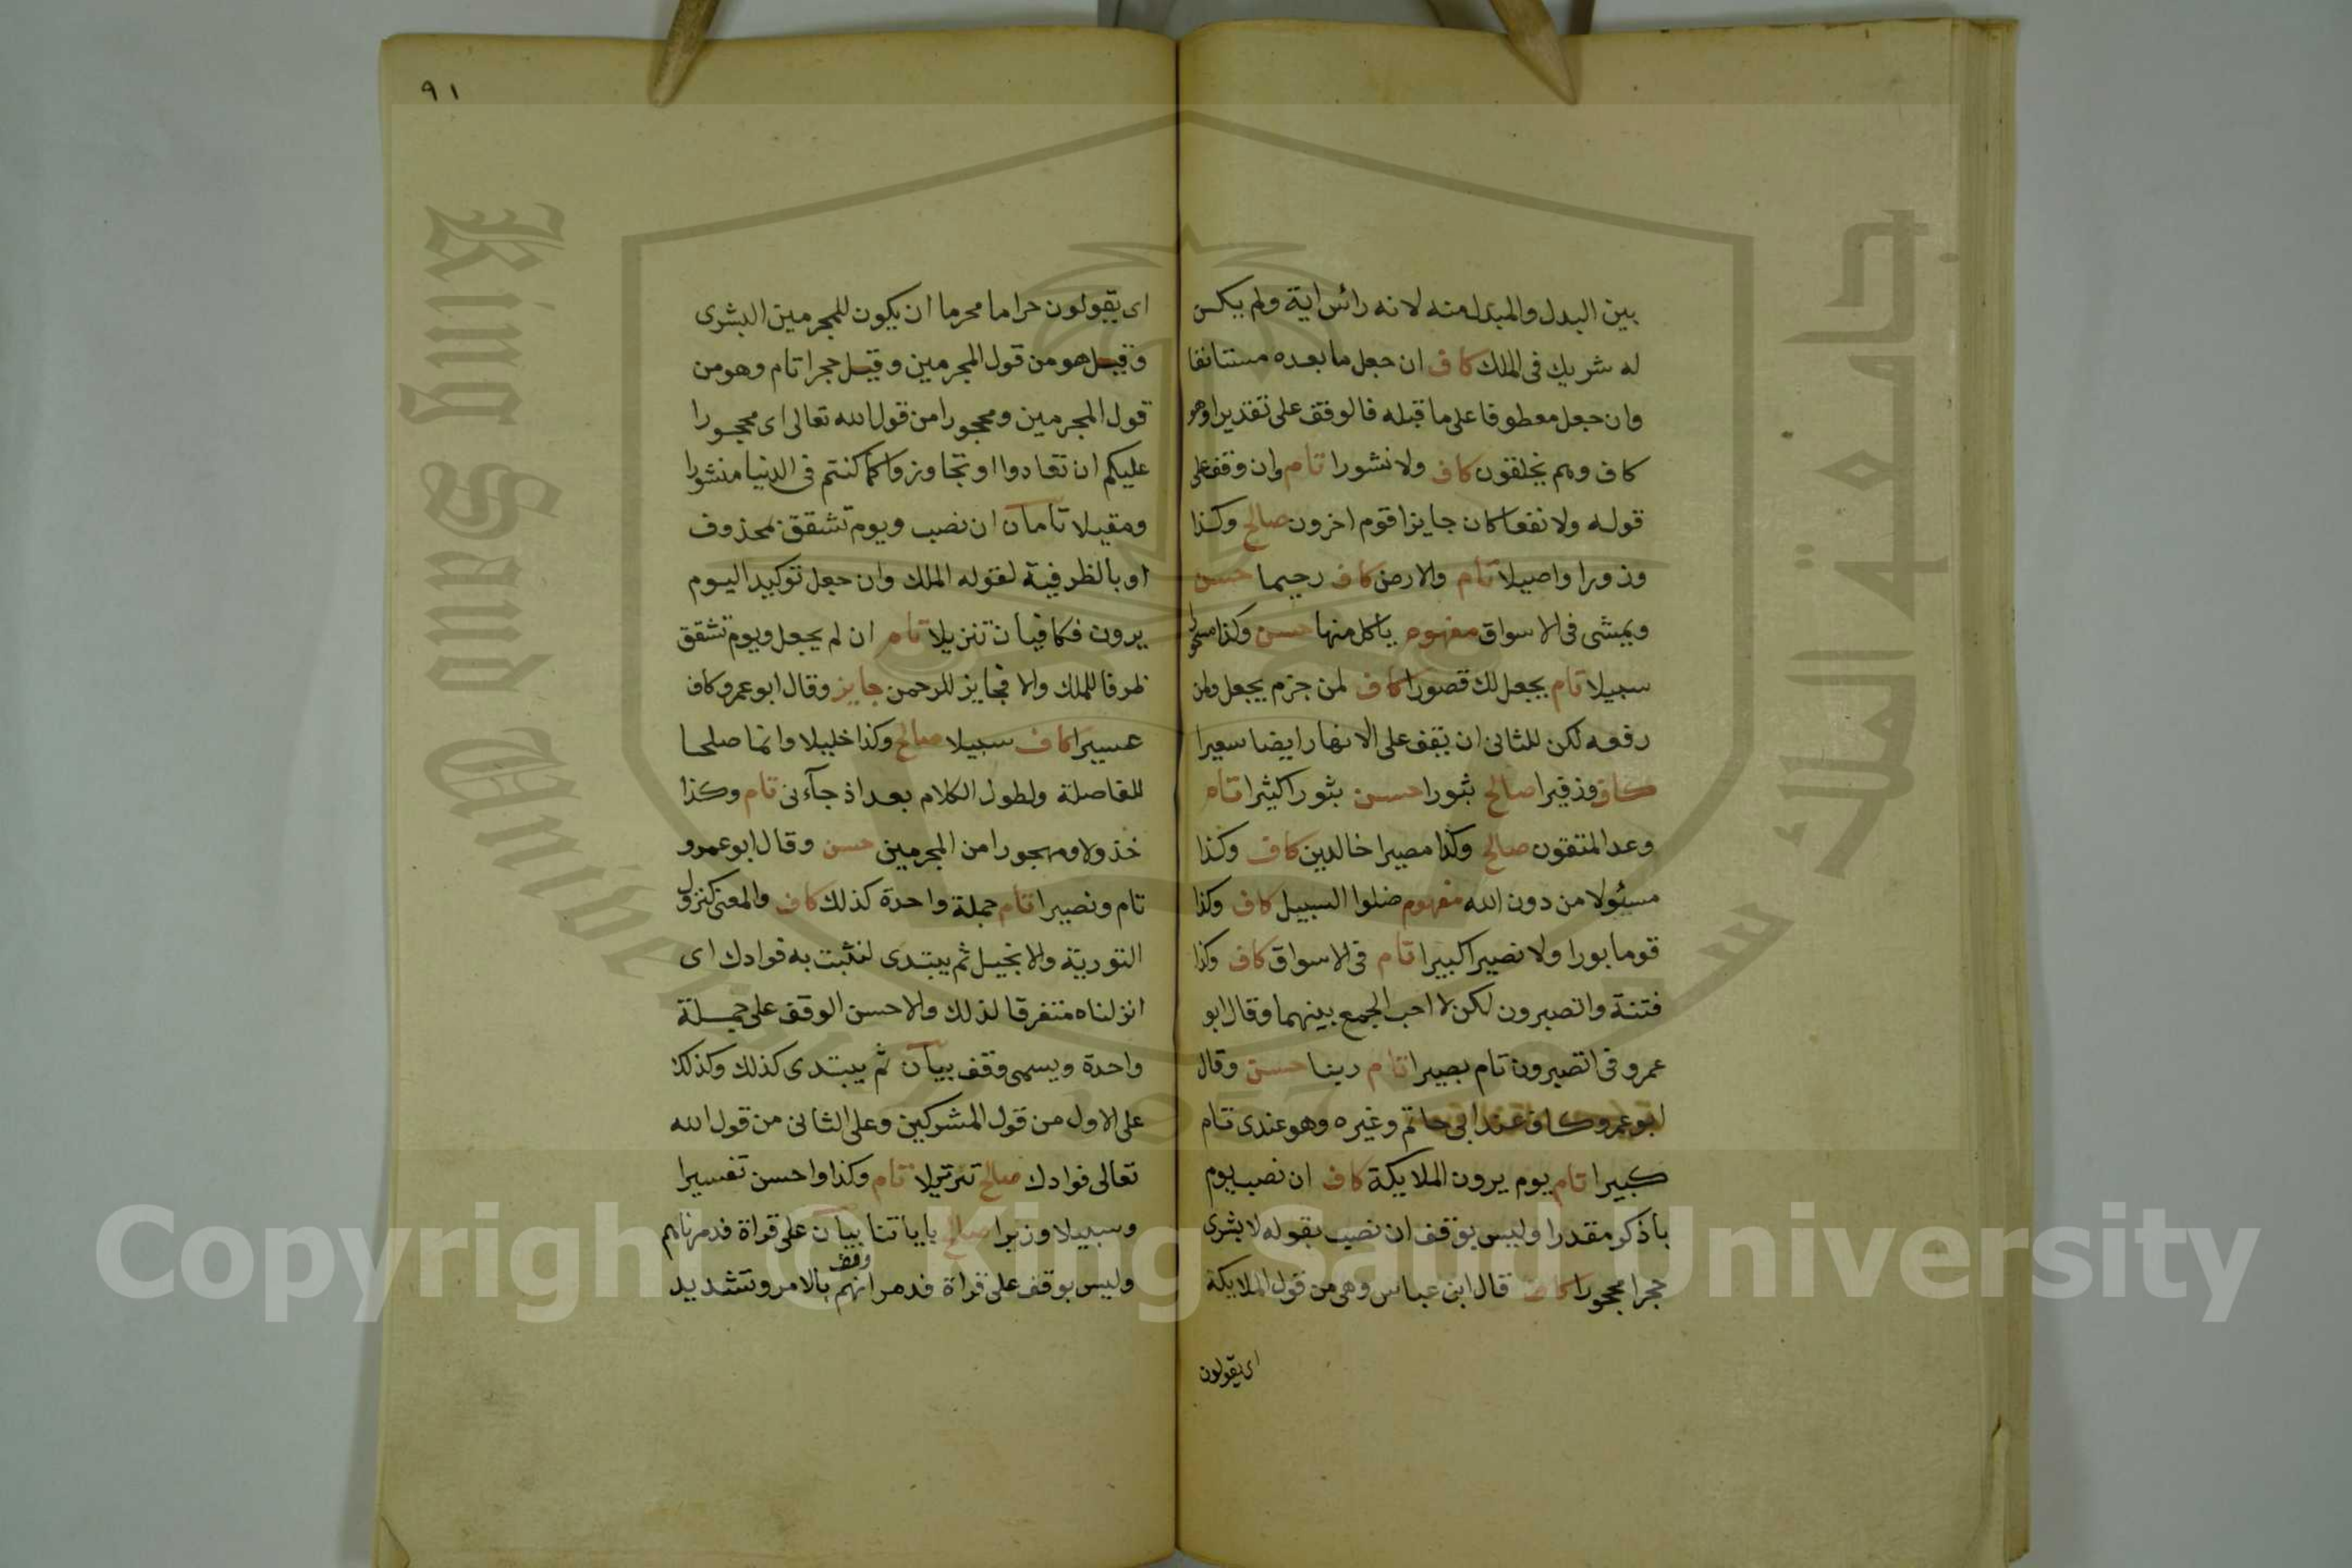 بين البدل والمبدل منه لانه رائس اية ولم يكن
له شريك فى الملك كاف ان جعل ما بعده مستانفا
وان جعل معطوفا على ما قبله فالوقف على تقديرا وهو
كاف وهم يخلقون كاف ولا نشورا تام وان وقف على
قوله ولا نفعا كان جايزا قوم اخرون صالح وكذا
وزورا واصيلا تام والارض كاف رحيما حسن
ويمشى فى الاسواق مفهوم ياكل منها حسن وكذا مسحورا
سبيلا تام يجعل لك قصورا كاف لمن جزم يجعل ولمن
رفعه لكن للثانى ان يقف على الانهار ايضا سعيرا
كاف وزفيرا صالح ثبورا حسن ثبورا كثيرا تام
وعد المتقون صالح وكذا مصيرا خالدين كاف وكذا
مسئولا من دون الله مفهوم ضلوا السبيل كاف وكذا
قوما بورا ولا نصيرا كبيرا تام فى الاسواق كاف وكذا
فتنة واتصبرون لكن لا احب الجمع بينهما وقال ابو
عمرو فى اتصبرون تام بصيرا تام ربنا حسن وقال
ابو عمرو كاف عند ابى حاتم وغيره وهو عندى تام
كبيرا تام يوم يرون الملايكة كاف ان نصب يوم
باذكر مقدرا وليس بوقف ان نصب بقوله لا بشرى
حجرا محجورا كاف قال ابن عباس وهى من قول الملايكة
اى يقولون
٩١
اى يقولون حراما محرما ان يكون للمجرمين البشرى
وقيل هو من قول المجرمين وقيل حجرا تام وهو من
قول المجرمين ومحجورا من قول الله تعالى اى محجورا
عليكم ان تعادوا او تجاوزوا كما كنتم فى الدنيا منشورا
ومقيلا تامان ان نصب ويوم تشقق بمحذوف
او بالظرفية لقوله الملك وان جعل توكيدا ليوم
يرون فكافيان تنزيلا تام ان لم يجعل ويوم تشقق
ظرفا للملك والا فجايز للرحمن جايز وقال ابو عمرو كاف
عسيرا كاف سبيلا صالح وكذا خليلا وانما صلحا
للفاصلة ولطول الكلام بعد اذ جآءنى تام وكذا
خذولا ومهجورا من المجرمين حسن وقال ابو عمرو
تام ونصيرا تام جملة واحدة كذلك كاف والمعنى كنزول
التورية والانجيل ثم يبتدى لنثبت به فوادك اى
انزلناه متفرقا لذلك والاحسن الوقف على جملة
واحدة ويسمى وقف بيان ثم يبتدى كذلك وكذلك
على الاول من قول المشركين وعلى الثانى من قول الله
تعالى فوادك صالح ترتيلا تام وكذا واحسن تفسيرا
وسبيلا وزيرا صالح باياتنا بيان على قراة فدمرناهم
وليس بوقف على قراة فدمرانهم وقف بالامر وتشديد
King Saud University
جامعة الملك سعود
1957
Copyright © King Saud University